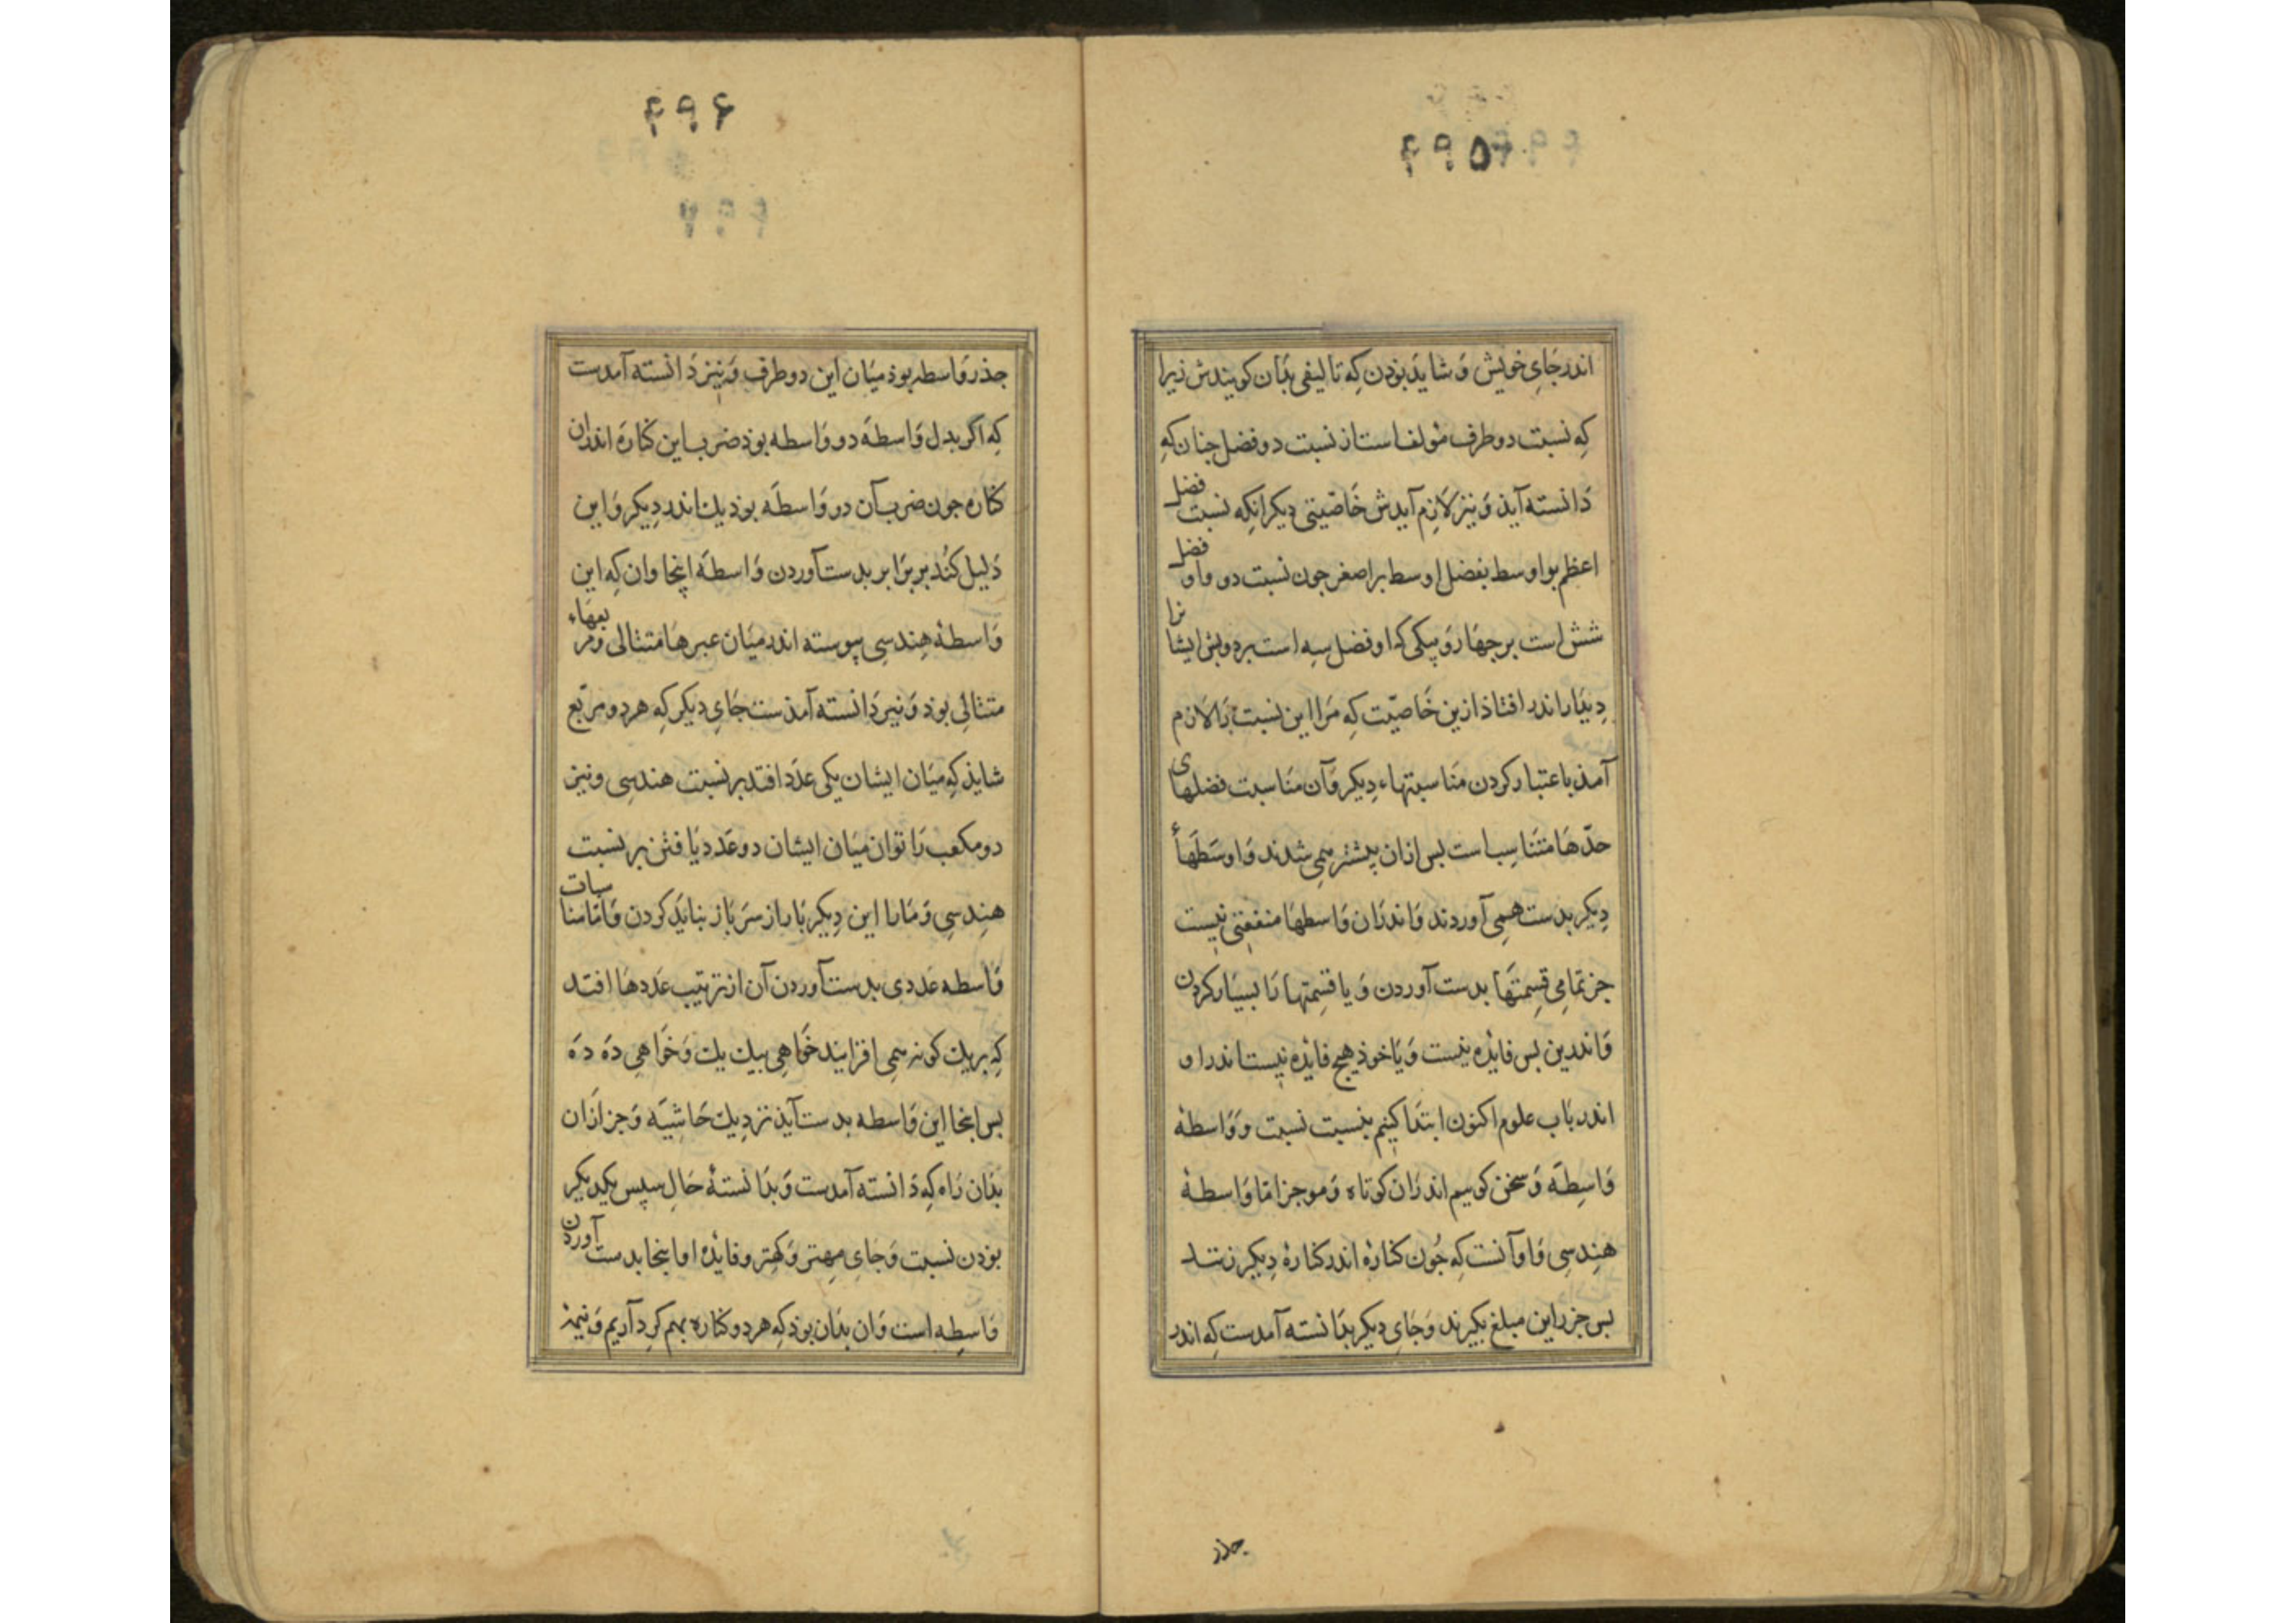 ۴۹۵
اندر جَایِ خویش وَ شاید بوذن کِه تالیفی بذان کویندش زیرا
کِه نسبت دو طرف مؤلف است از نسبت دو فضل جنان کِه
دَانسته آیذ وَ نیز لازم آیدش خَاصّیتی دیکر انکِه نسبت فضل
اعظم بر اوسط بفضل اوسط بر اصغر جون نسبت دو و او فضل
شش است بر جهَار وَ یکی که او فضل سِه است بر دو بش ایشانرا
دِیدَار اندر افتاذ ازین خَاصیّت کِه مَرا این نسبت رَا لازم
آمذ باعتبار کردن مَنَاسبتهاء دِیکر وَ آن مَنَاسبت فضلهای
حدّهَا متنَاسِب است بس ازان بیشتر همِی شدند وَ اوسَطهَأ
دِیکر بدست همِی آوردند وَ اندرَان وَاسطهَا منفعتی نیست
جز تمَامِی قِسِمتهَا بدست آوردن وَ یا قسِمتها رَا بسیَار کردن
وَ اندرین بس فایدَه نیست وَ یَا خوذ هیج فایدَه نیست اندر او
اندر بَاب علوم اکنون ابتدَا کنِیم بنسبت نسبت وَ وَاسطهٔ
وَاسِطَه وَ سخن کوییم اندرَان کوتاه وَ موجز امّا وَاسطهٔ
هنِدسِی وَ او آنست کِه جُون کنارَهٔ اندر کنارَهٔ دِیکر زنند
بس جزر این مبلغ بکیرند وَ جَایِ دیکر بدَانسته آمدست کِه اندر
جذر
۴۹۶
جذر وَاسطه بوذ میَان این دو طرف وَ نیز دَانسته آمدست
کِه اکر بدل وَاسطَه دو وَاسطه بوذ ضرب این کنارَه اندران
کنارَه جون ضرب آن دو وَاسطَه بوذ یك اندر دِیکر وَ این
دَلیل کُند بر برَابر بدست آوردن وَاسطَه اینجا وان کِه این
وَاسطهٔ هِندسِی بیوسته اندر میَان عبرهَا متثالی و مربعهَاء
متثالِی بوذ وَ نیز دَانسته آمذست جَایِ دیکر کِه هر دو مربّع
شایذ کِه میَان ایشان یکی عدَد افتد بر نسبت هندسِی و نیز
دو مکعب رَا توان میَان ایشان دو عَدد یَافتن بر نسبت
هنِدسِی وَ مَارا این دِیکر بَار از سَر بَاز نبایَد کردن وَ امّا مناسبات
وَاسطه عَددی بدست آوردن آن از ترتیب عَددهَا افتد
کِه بریك کونه همِی افزایند خَواهِی بیك یك وَ خَوَاهِی دَه دَه
بس اینجا این وَاسطه بدست آیذ نزدِیك حَاشیَه وَ جز ازَان
بذان رَاه کِه دَانسته آمدست وَ بدَانستهٔ حَالِ سِپس یکدیکر
بوذن نسبت وَ جَایِ مِهتر وَ کهتر و فایدَه او اینجا بدست آوردن
وَاسِطه است وَ ان بذان بوذ کِه هر دو کناره بهم کرد آریم وَ نیمهٔ